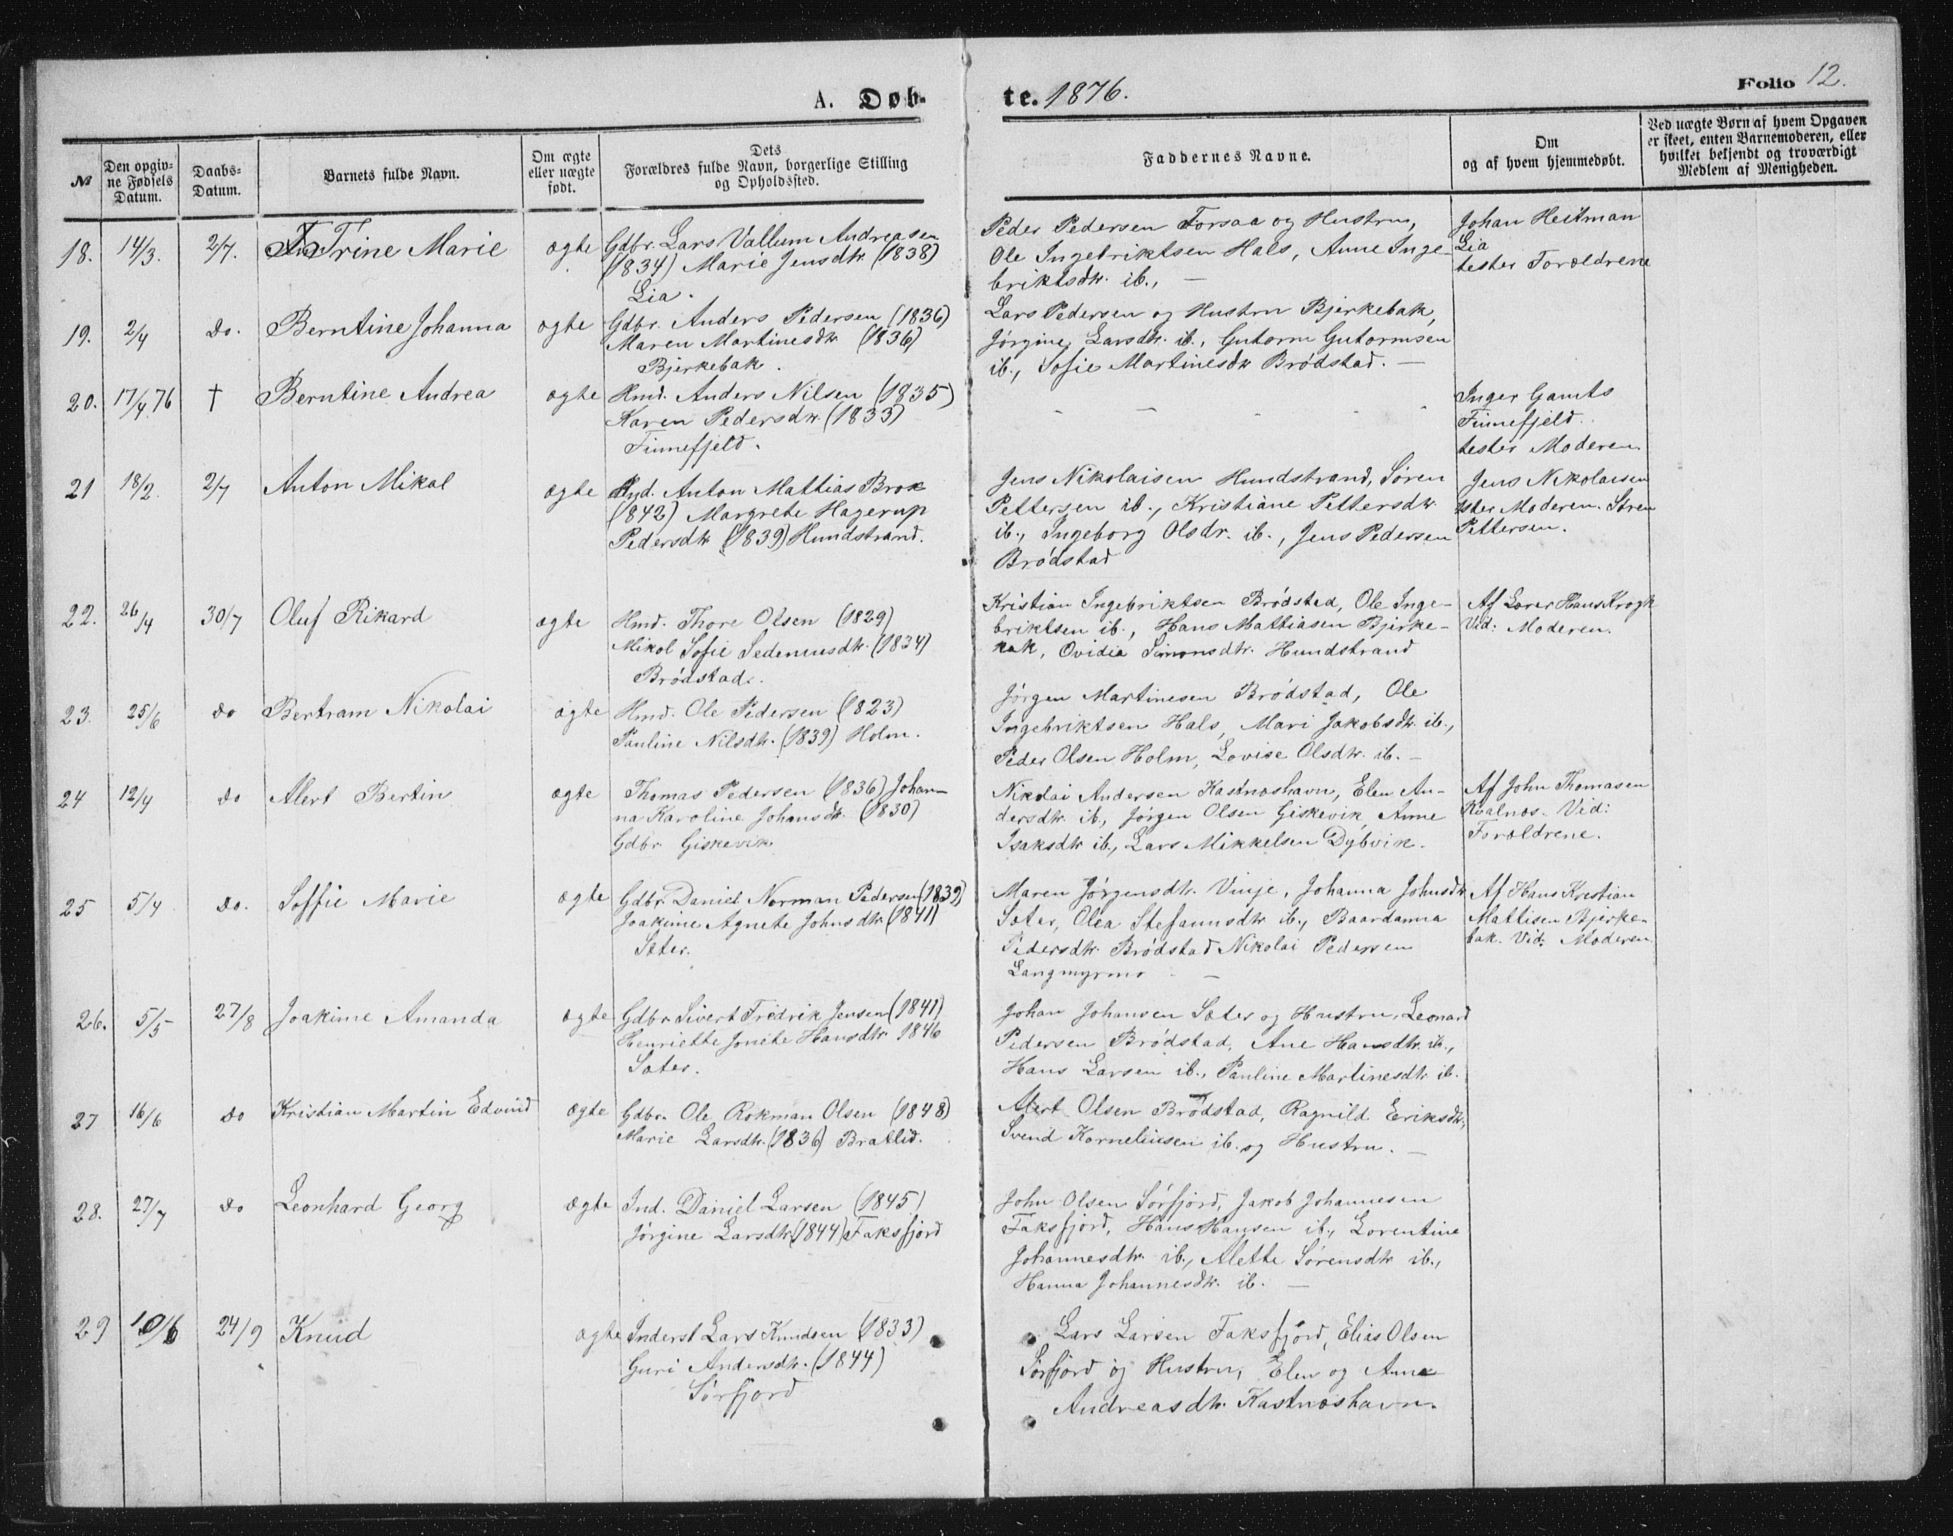 A. Døb-
te. 1876.
Folio 12.
№
Den opgiv-
ne Fødsels
Datum.
Daabs-
Datum.
Barnets fulde Navn.
Om ægte
eller uægte
født.
Dets
Forældres fulde Navn, borgerlige Stilling
og Opholdssted.
Faddernes Navne.
Om
og af hvem hjemmedøbt.
Ved uægte Børn af hvem Opgaven
er skeet, enten Barnemoderen, eller
hvilket bekjendt og troværdigt
Medlem af Menigheden.
18. 14/3. 2/7. Trine Marie ægte
Gdbr. Lars Vallum Andreasen
(1834) Marie Jensdtr. (1838)
Lia.
Peder Pedersen Forsaa og Hustru,
Ole Ingebriktsen Hals, Anne Inge-
briktsdtr. ib., —
Johan Heitman
Lia
tester Forældrene
19. 2/4 do. Berntine Johanna ægte
Gdbr. Anders Pedersen (1836)
Maren Martinesdtr (1836)
Bjerkebak.
Lars Pedersen og Hustru Bjerkebak,
Jørgine Larsdtr. ib., Gutorm Gutormsen
ib., Sofie Martinesdtr Brødstad. —
20. 17/4.76 † Berntine Andrea ægte
Hmd. Anders Nilsen (1835)
Karen Pedersdtr. (1833)
Finnefjeld.
Inger Gamts
Finnefjeld.
tester Moderen
21 18/2. 2/7 Anton Mikal ægte
Anton Mattias Brox
(1842) Margrete Hagerup
Pedersdtr (1839) Hundstrand.
Jens Nikolaisen Hundstrand, Søren
Pettersen ib., Kristiane Pettersdtr
ib., Ingeborg Olsdr. ib., Jens Pedersen
Brødstad
Jens Nikolaisen
tster Moderen. Søren
Pettersen.
22. 26/4 30/7 Oluf Rikard ægte
Hmd. Thore Olsen (1829)
Mikol Sofie Sedeniusdtr. (1834)
Brødstad.
Kristian Ingebriktsen Brødstad, Ole Inge-
briktsen ib., Hans Mattiasen Bjerke-
bak, Ovidia Simonsdtr. Hundstrand
Af Lærer Hans Krogh
Vid: Moderen.
23. 25/6 do Bertram Nikolai ægte
Hmd. Ole Pedersen (1823)
Pauline Nilsdtr. (1839) Holm.
Jørgen Martinesen Brødstad, Ole
Ingebriktsen Hals, Mari Jakobsdtr. ib.,
Peder Olsen Holm, Lovise Olsdtr. ib. —
24 12/4 do Alert Bertin ægte
Thomas Pedersen (1836) Johan-
na Karoline Johansdtr. (1830)
Gdbr Giskevik
Nikolai Andersen Kastnæshavn, Elen An-
dersdtr. ib., Jørgen Olsen Giskevik, Anne
Isaksdtr ib., Lars Mikkelsen Dybvik.
Af John Thomasen
Kvalnæs. Vid:
Forældrene.
25 5/4 do. Soffie Marie ægte
Gdbr. Daniel Norman Pedersen (1839)
Joakime Agnete Johnsdtr (1841)
Sæter.
Maren Jørgensdtr. Vinje, Johanna Johnsdtr
Sæter, Olea Stefanusdtr ib., Baardanna
Pedersdtr. Brødstad Nikolai Pedersen
Langmyrmo —
Af Hans Kristian
Mattisen Bjerke-
bak. Vid: Moderen
26. 5/5 27/8 Joakime Amanda ægte
Gdbr Sivert Fredrik Jensen (1841)
Henriette Jonette Hansdtr 1846
Sæter.
Johan Johansen Sæter og Hustru, Leonard
Pedersen Brødstad, Ane Hansdtr. ib.,
Hans Larsen ib., Pauline Martinesdtr ib.
27 16/6 do Kristian Martin Edvind ægte
Gdbr. Ole Rokman Olsen (1848)
Marie Larsdtr. (1836) Bratlid.
Alert Olsen Brødstad, Ragnild Eriksdtr,
Svend Korneliusen ib. og Hustru. —
28. 27/7 do Leonhard Georg ægte
Ind. Daniel Larsen (1845)
Jørgine Larsdtr. (1844) Faksfjord
John Olsen Sørfjord, Jakob Johannesen
Faksfjord, Hans Hansen ib., Lorentine
Johannesdtr. ib., Alette Sørensdtr ib.,
Hanna Johannesdtr. ib. —
29 10/6 24/9 Knud ægte
Inderst Lars Knudsen (1833)
Guri Andersdtr. (1844)
Sørfjord
Lars Larsen Faksfjord, Elias Olsen
Sørfjord og Hustru, Elen og Anne
Andreasdtr. Kastnæshavn.